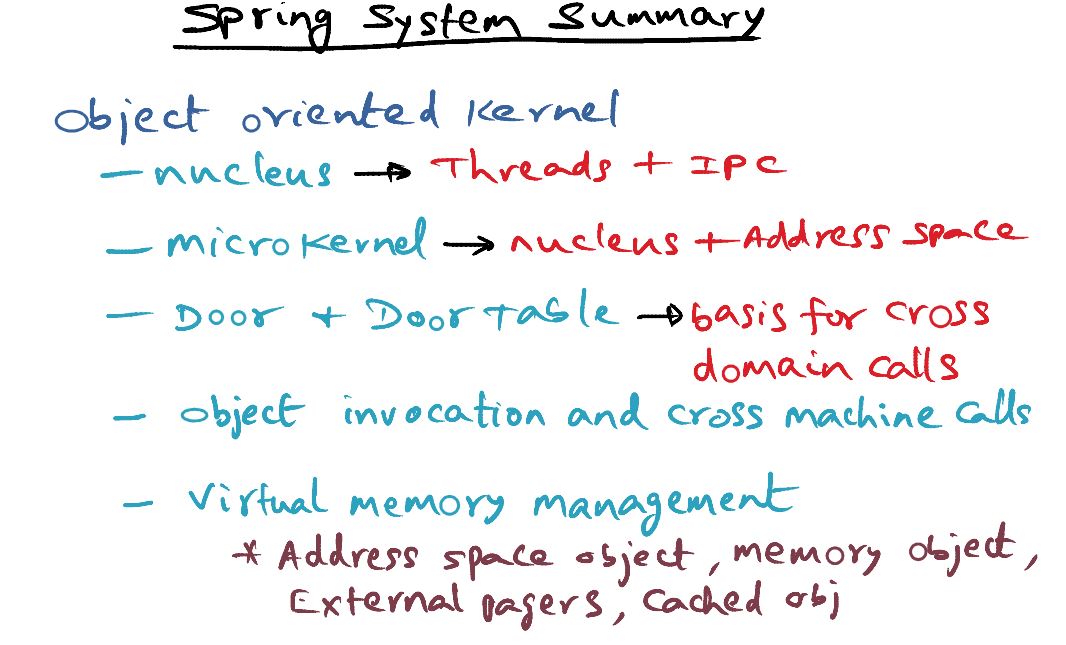 Spring System Summary
Object oriented Kernel
— nucleus → Threads + IPC
— microkernel → nucleus + Address space
— Door + Door Table → basis for cross
domain calls
— object invocation and cross machine calls
— Virtual memory management
* Address space object, memory object,
External pagers, Cached obj